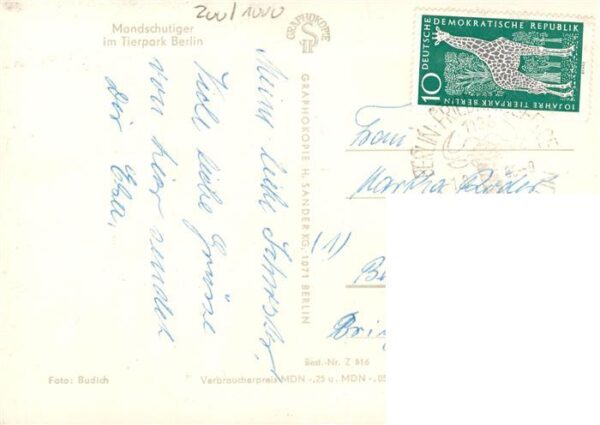 200/1000
Mandschutiger
im Tierpark Berlin
GRAPHOKOPIE
H S
GRAPHOKOPIE H. SANDER KG, 1071 BERLIN
DEUTSCHE DEMOKRATISCHE REPUBLIK
10
10 JAHRE TIERPARK BERLIN
Meine liebe Schwester,
Viele liebe Grüsse
von hier sendet
Dir
Frau
Martha
(1)
Best.-Nr. Z 816
Foto: Budich
Verbraucherpreis MDN -,25 u. MDN -,05